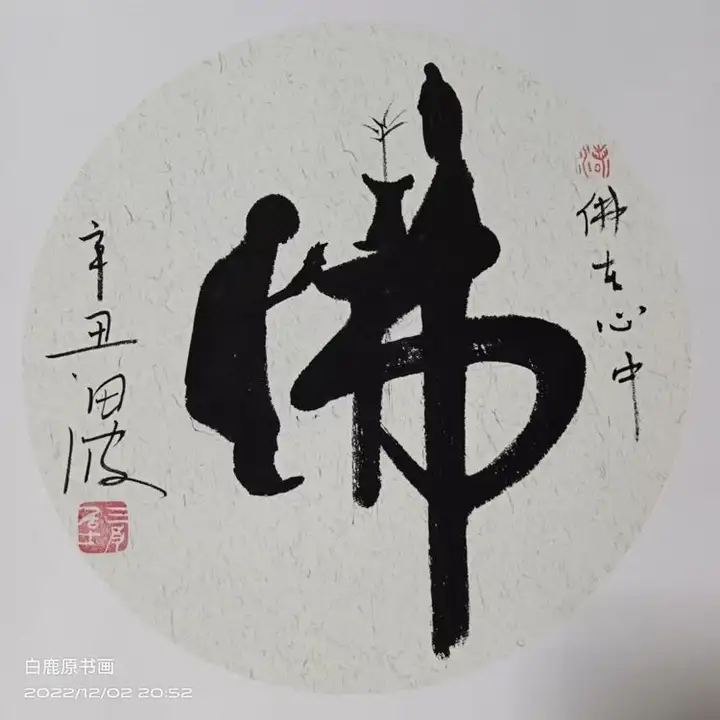 佛
佛在心中
辛丑洄波
白鹿原书画
2022/12/02 20:52